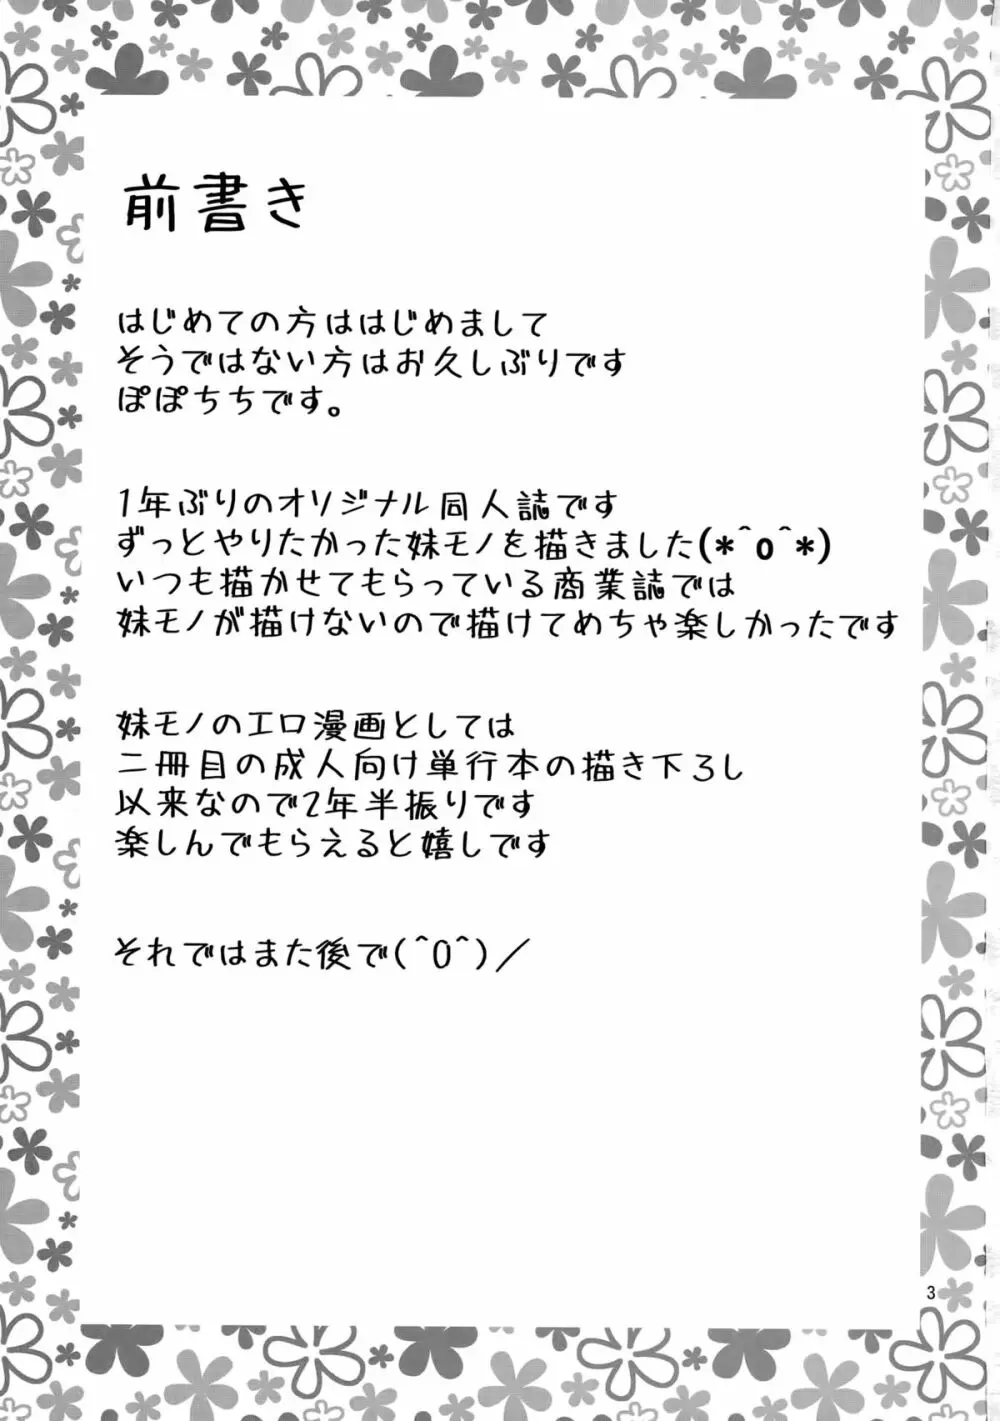 前書き
はじめての方ははじめまして
そうではない方はお久しぶりです
ぽぽちちです。
1年ぶりのオリジナル同人誌です
ずっとやりたかった妹モノを描きました(*^o^*)
いつも描かせてもらっている商業誌では
妹モノが描けないので描けてめちゃ楽しかったです
妹モノのエロ漫画としては
二冊目の成人向け単行本の描き下ろし
以来なので2年半振りです
楽しんでもらえると嬉しです
それではまた後で(^O^)／
3